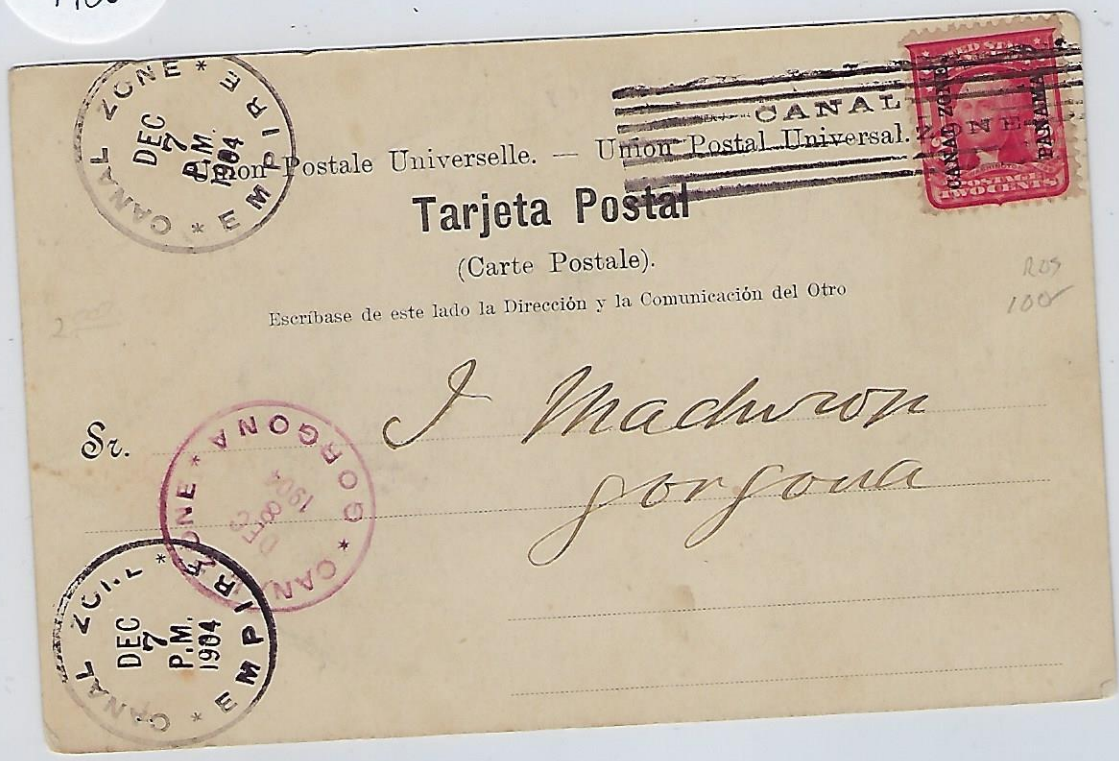 CANAL ZONE * EMPIRE *
DEC
7
P.M.
1904
CANAL
ZONE
UNITED STATES
CANAL ZONE.
PANAMA
POSTAGE
TWO CENTS
Union Postale Universelle. — Union Postal Universal.
Tarjeta Postal
(Carte Postale).
Escríbase de este lado la Dirección y la Comunicación del Otro
Ros
100
Sr. J Maduron
Gorgona
GORGONA * CANAL ZONE *
DEC
8
1904
CANAL ZONE * EMPIRE *
DEC
7
P.M.
1904